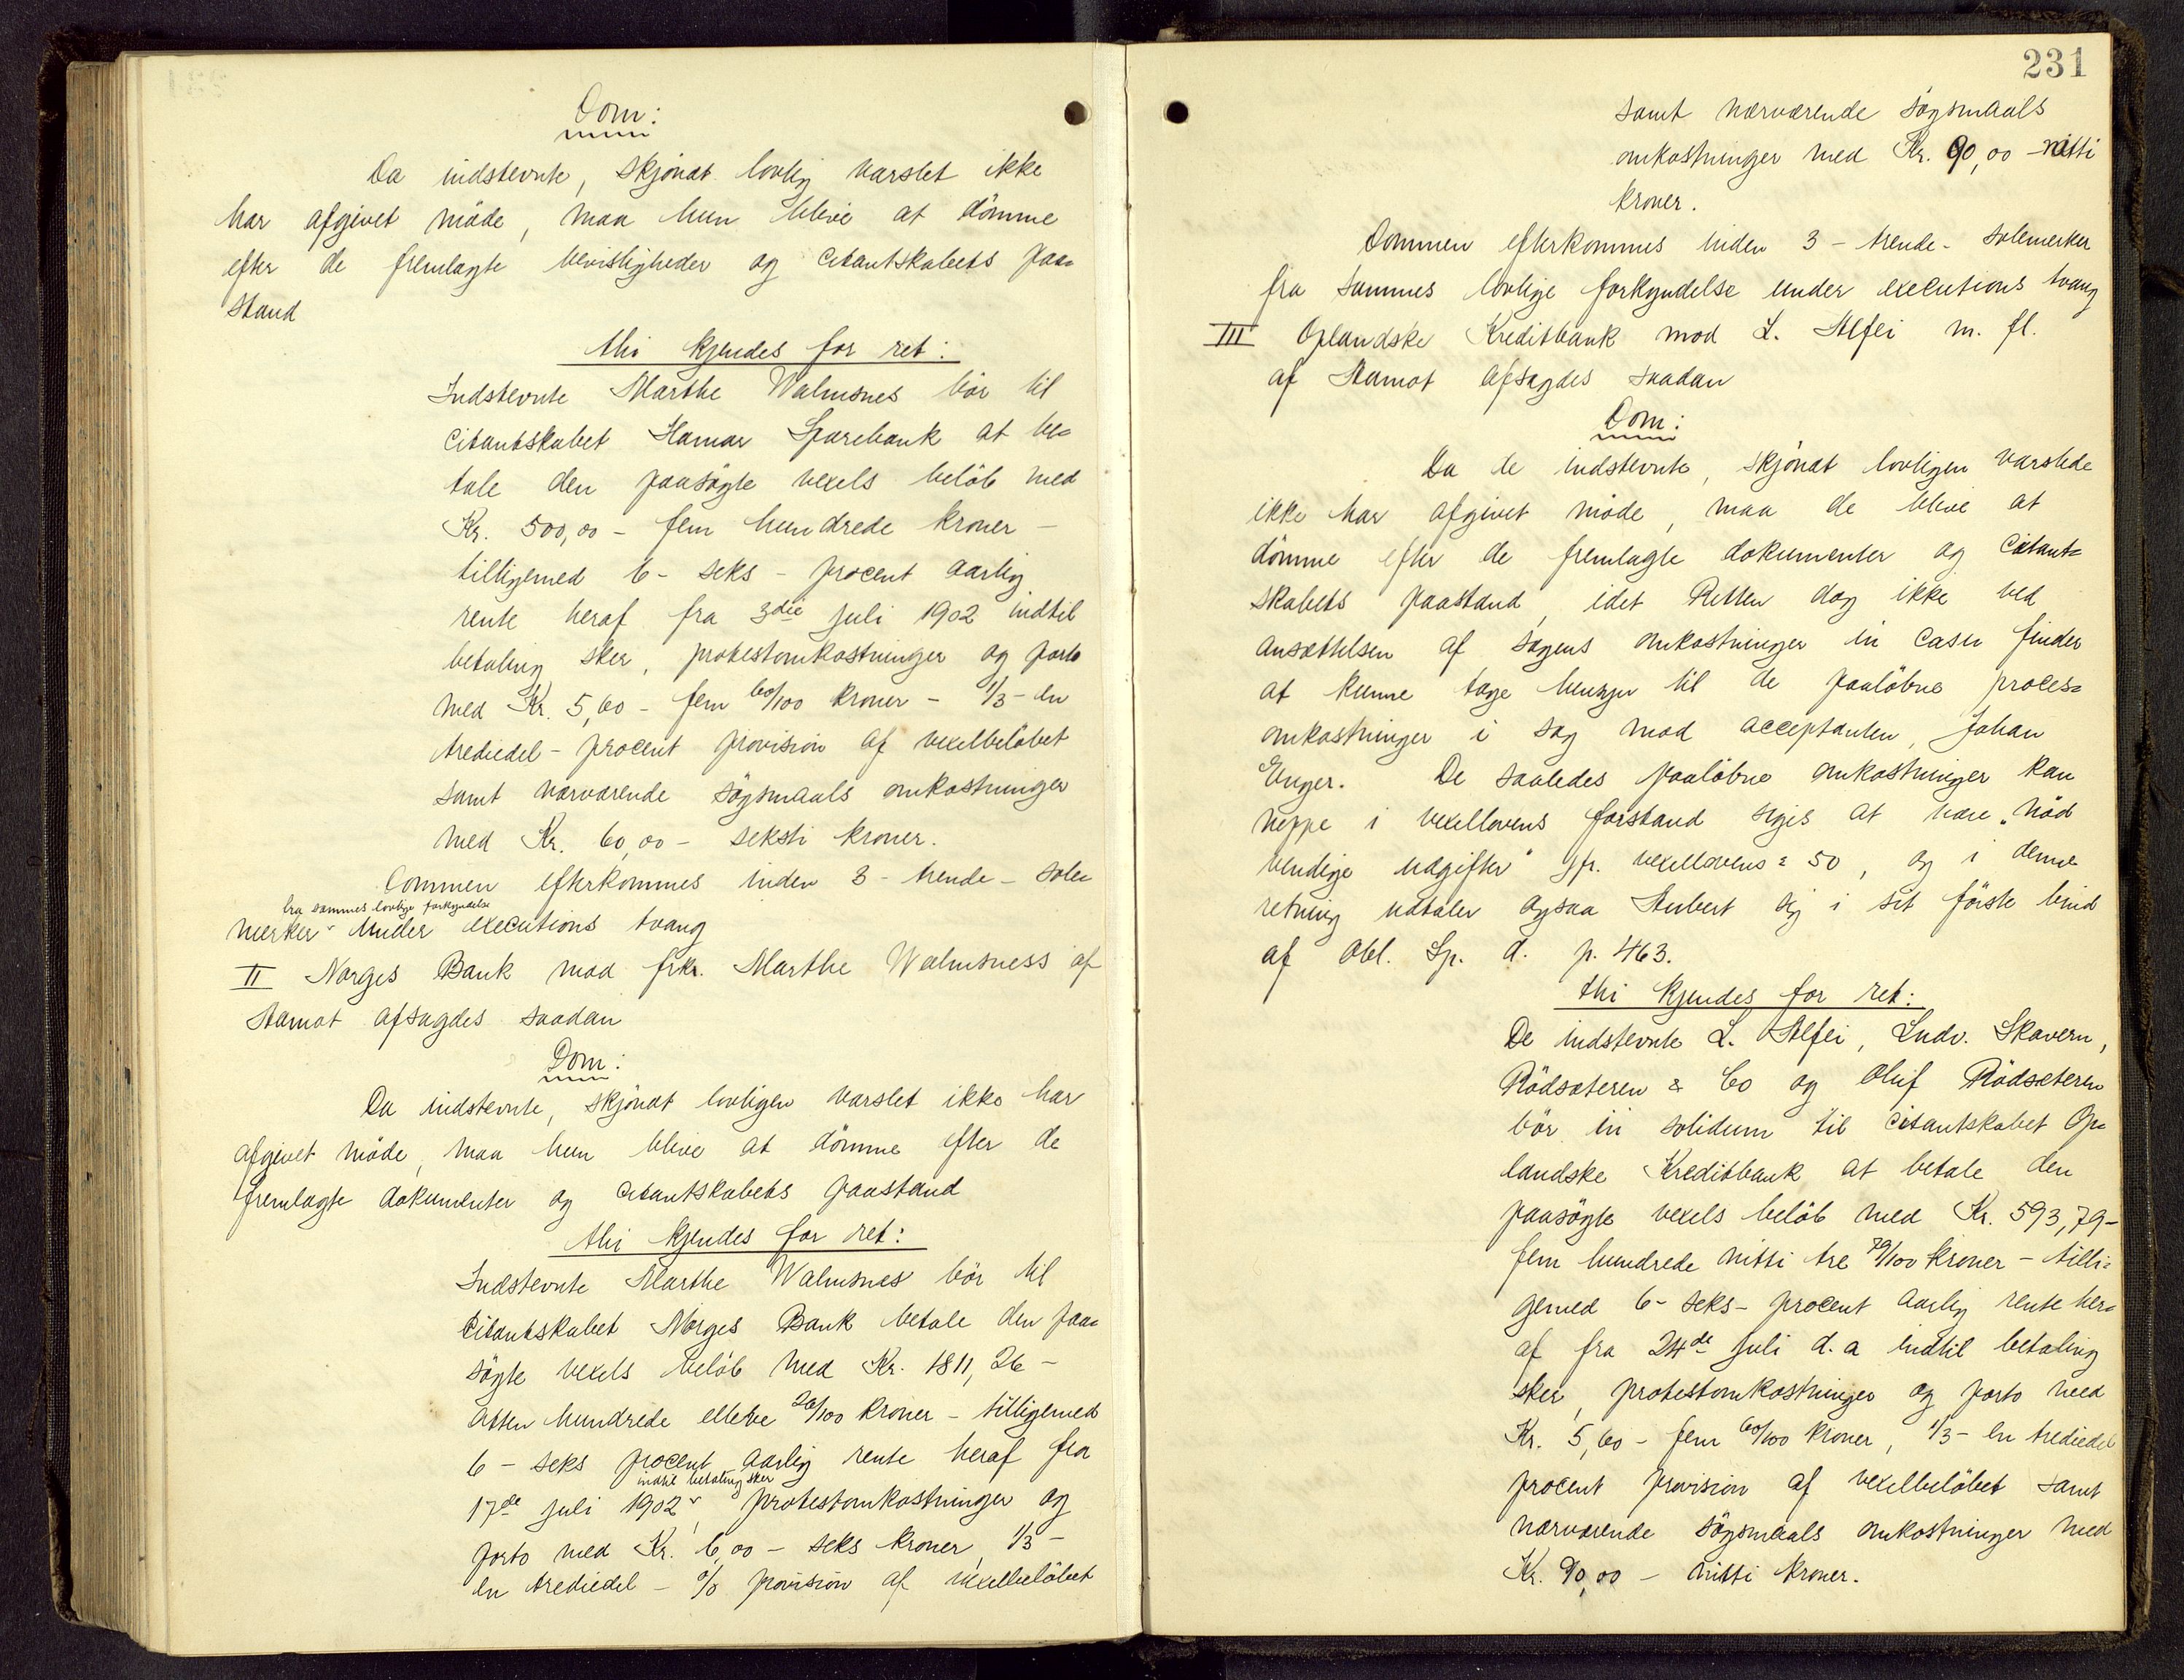 Dom:
Da indstevnte, skjönt lovlig varslet ikke
har afgivet möde, maa hun blive at dömme
efter de fremlagte bevisligheder og citantskabets paa=
stand
thi kjendes for ret:
Indstevnte Marthe Walmsnes bör til
citantskabet Hamar Sparebank at be=
tale den paasögte vexels belöb med
Kr. 500,00 - fem hundrede kroner -
tilligemed 6 - seks - procent aarlig
rente heraf fra 3die juli 1902 indtil
betaling sker, protestomkostninger og porto
med Kr. 5,60 - fem 60/100 kroner - 1/3 - en
trediedel - procent provision af vexelbelöbet
samt nærværende sögsmaals omkostninger
med Kr. 60,00 - seksti kroner.
Dommen efterkommes inden 3 - trende - sole=
fra sammes lovlige forkyndelse
merker ˅ under executions tvang
II Norges Bank mod frk. Marthe Walmsness af
Aamot afsagdes saadan
Dom:
Da indstevnte, skjönt lovligen varslet ikke har
afgivet möde, maa hun blive at dömme efter de
fremlagte dokumenter og citantskabets paastand
thi kjendes for ret:
Indstevnte Marthe Walmsnes bör til
Citantskabet Norges Bank betale den paa=
sögte vexels belöb med Kr. 1811,26 -
atten hundrede elleve 26/100 kroner - tilligemed
6 - seks procent aarlig rente heraf fra
indtil betaling sker
17de juli 1902 ˅, protestomkostninger og
porto med Kr. 6,00 - seks kroner, 1/3 -
en trediedel - o/o provision af vexelbelöbet
231
samt nærværende sögsmaals
omkostninger med Kr. 90,00 - nitti
kroner.
Dommen efterkommes inden 3 - trende - solemerker
fra sammes lovlige forkyndelse under executions tvang
III Oplandske Kreditbank mod L. Alfei m. fl.
af Aamot afsagdes saadan
Dom:
Da de indstevnte, skjönt lovligen varslede
ikke har afgivet möde, maa de blive at
dömme efter de fremlagte dokumenter og Citant=
skabets paastand, idet Retten dog ikke ved
ansættelsen af sagens omkostninger in casu finder
at kunne tage hensyn til de paalöbne proces=
omkostninger i sag mod acceptanten, Johan
Enger. De saaledes paalöbne omkostninger kan
neppe i vexellovens forstand siges at være „nöd
vendige udgifter" jfr. vexellovens § 50, og i denne
retning udtaler ogsaa Aubert sig i sit förste bind
af Obl. Sp. d. p. 463.
thi kjendes for ret:
De indstevnte L. Alfei, Ludv. Skavern,
Rödsæteren & Co og Oluf Rödsæteren
bör in solidum til citantskabet Op=
landske Kreditbank at betale den
paasögte vexels belöb med Kr. 593,79 -
fem hundrede nitti tre 79/100 kroner - tilli=
gemed 6 - seks - procent aarlig rente her=
af fra 24de juli d. a indtil betaling
sker, protestomkostninger og porto med
Kr. 5,60 - fem 60/100 kroner, 1/3 - en trediedel
procent provision af vexelbelöbet samt
nærværende sögsmaals omkostninger med
Kr. 90,00 - nitti kroner.